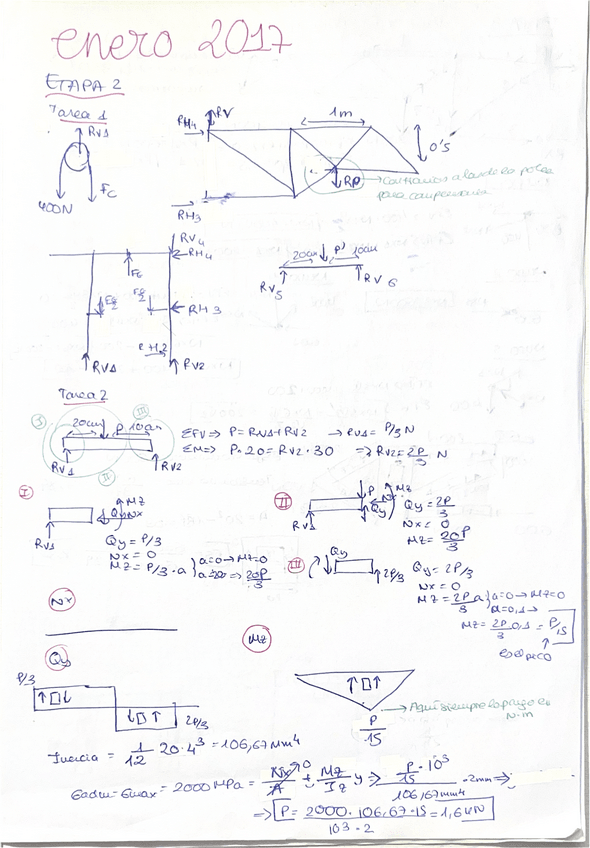 enero 2017
ETAPA 2
Tarea 1
RV1
400N
FC
RH4
RV
1m
0'5
RP
RH3
RV4
RH4
RH3
RV1
RV2
20cm P' 10cm
RV5
RV6
Tarea 2
I
20cm P 10cm
III
II
RV1
RV2
ΣFV => P = RV1 + RV2 → RV1 = P/3 N
ΣM => P · 20 = RV2 · 30 => RV2 = 2P/3 N
I
Mz
Qy Nx
RV1
Qy = P/3
Nx = 0
Mz = P/3 · a { a=0 → Mz=0
=> 20P/3
II
P Mz
Nx
Qy
RV1
Qy = 2P/3
Nx = 0
Mz = 20P/3
III
Qy
2P/3
Qy = 2P/3
Nx = 0
Mz = 2P/3 a { a=0 → Mz=0
Mz = 2P/3 0,1 = P/15
es el pico
Nx
Mz
Qy
P/3
2P/3
P/15
Aquí siempre lo pongo en
N·m
Inercia = 1/12 20·4³ = 106,67 mm⁴
σadm = σmax = 2000 MPa = Nx/A ± Mz/Iz y => P/15 · 10³ / 106,67mm⁴ · 2mm =>
=> P = 2000 · 106,67 · 15 / 10³ · 2 = 1,6 kN